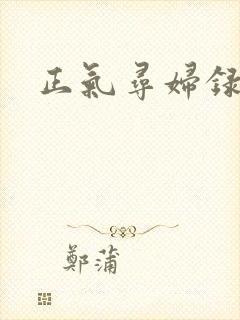 正氣尋婦録
鄭蒲